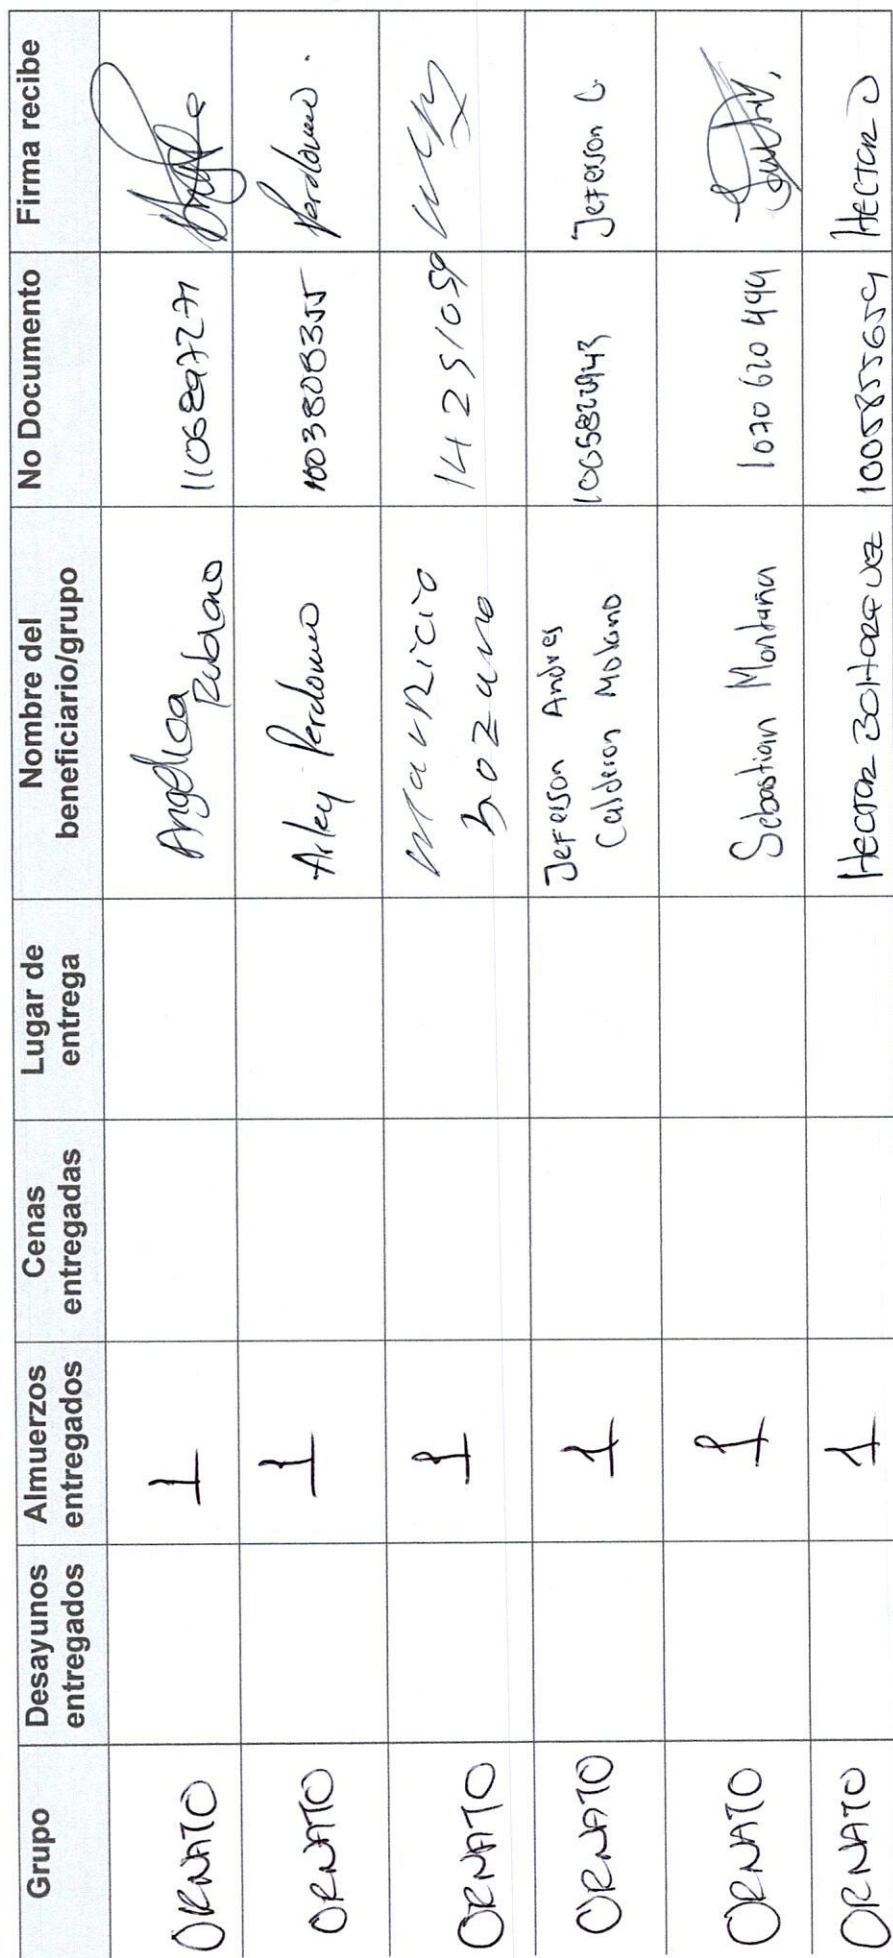 Grupo Desayunos entregados Almuerzos entregados Cenas entregadas Lugar de entrega Nombre del beneficiario/grupo No Documento Firma recibe
ORNATO 1 Angelica Rubiano
ORNATO 1 Arley Perdomo 1003808355 Perdomo.
ORNATO 1 mauricio Lozano 14251059
ORNATO 1 Jeferson Andres Calderon Molano Jeferson C
ORNATO 1 Sebastian Montaña 1070620499
ORNATO 1 Hector BOHORQUEZ 1005855659 HECTOR O